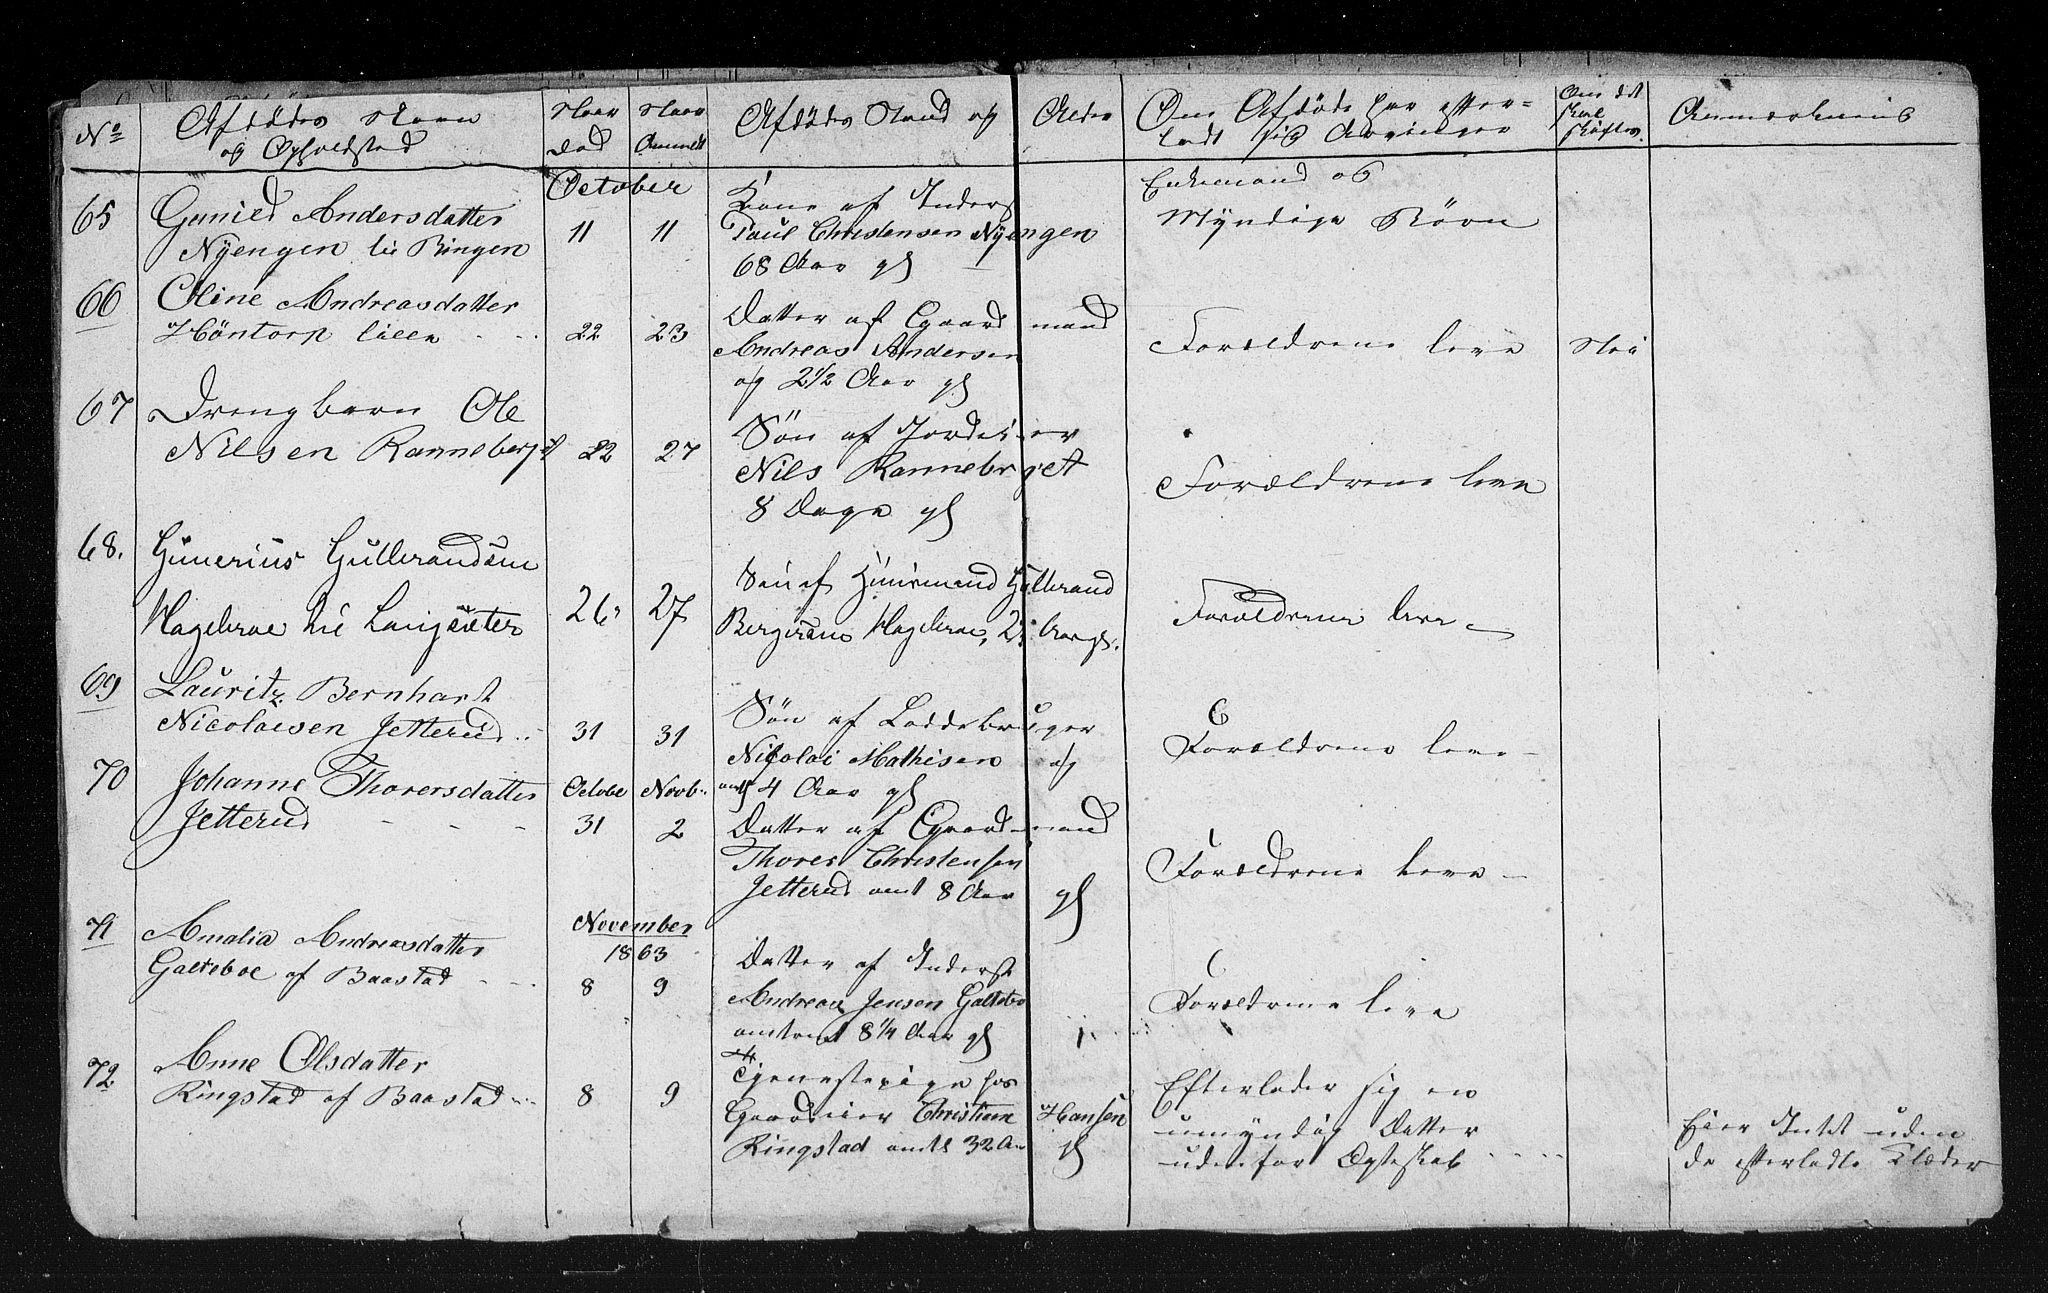 No
Afdødes Navn
og Opholdsted
Naar
død
Naar
Anmeldt
Afdødes Stand og
Alder
Om Afdøde har efter-
ladt sig Arvinger
Om det
skal
skiftes
Anmærkning
65
Gunild Andersdatter
Nyengen u/ Bingen
October
11
11
Kone af Inderst
Poul Christensen Nyengen
68 Aar gl
Enkemand og
Myndige Børn
66
Oline Andreasdatter
Høntorp lille
22
23
Datter af Gaardmand
Andreas Andersen
og 2 1/2 Aar gl
Forældrene leve
Nei
67
Drengbarn Ole
Nilsen Ranneberget
22
27
Søn af Jordeier
Nils Ranneberget
8 Dage gl
Forældrene leve
68.
Gunerius Gulbrandsen
Hagebroe Langsæter
26
27
Søn af Huusmand Gulbrand
Bergersen Hagebroe, Aar gl.
Forældrene leve
69
Lauritz Bernhart
Nicolaisen Jetterud
31
31
Søn af Loddebruger
Nicolai Mathisen og
4 Aar gl
Forældrene leve
70
Johanne Thorersdatter
Jetterud
October
31
Novb.
2
Datter af Gaardmand
Thorer Christensen
Jetterud omt 8 Aar gl
Forældrene leve
71
Amalia Andreasdatter
Galteboe af Baastad
November
1863
8
9
Datter af Inderst
Andreas Jensen Galtebo
omtrent 8 1/4 Aar gl
Forældrene leve
72
Anne Olsdatter
Ringstad af Baastad
8
9
Tjenestepige hos
Gaardeier Christian Hansen
Ringstad omt 32 Aar gl
Efterlader sig en
umyndig Datter
udenfor Ægteskab
Eier Intet uden
de efterladte Klæder